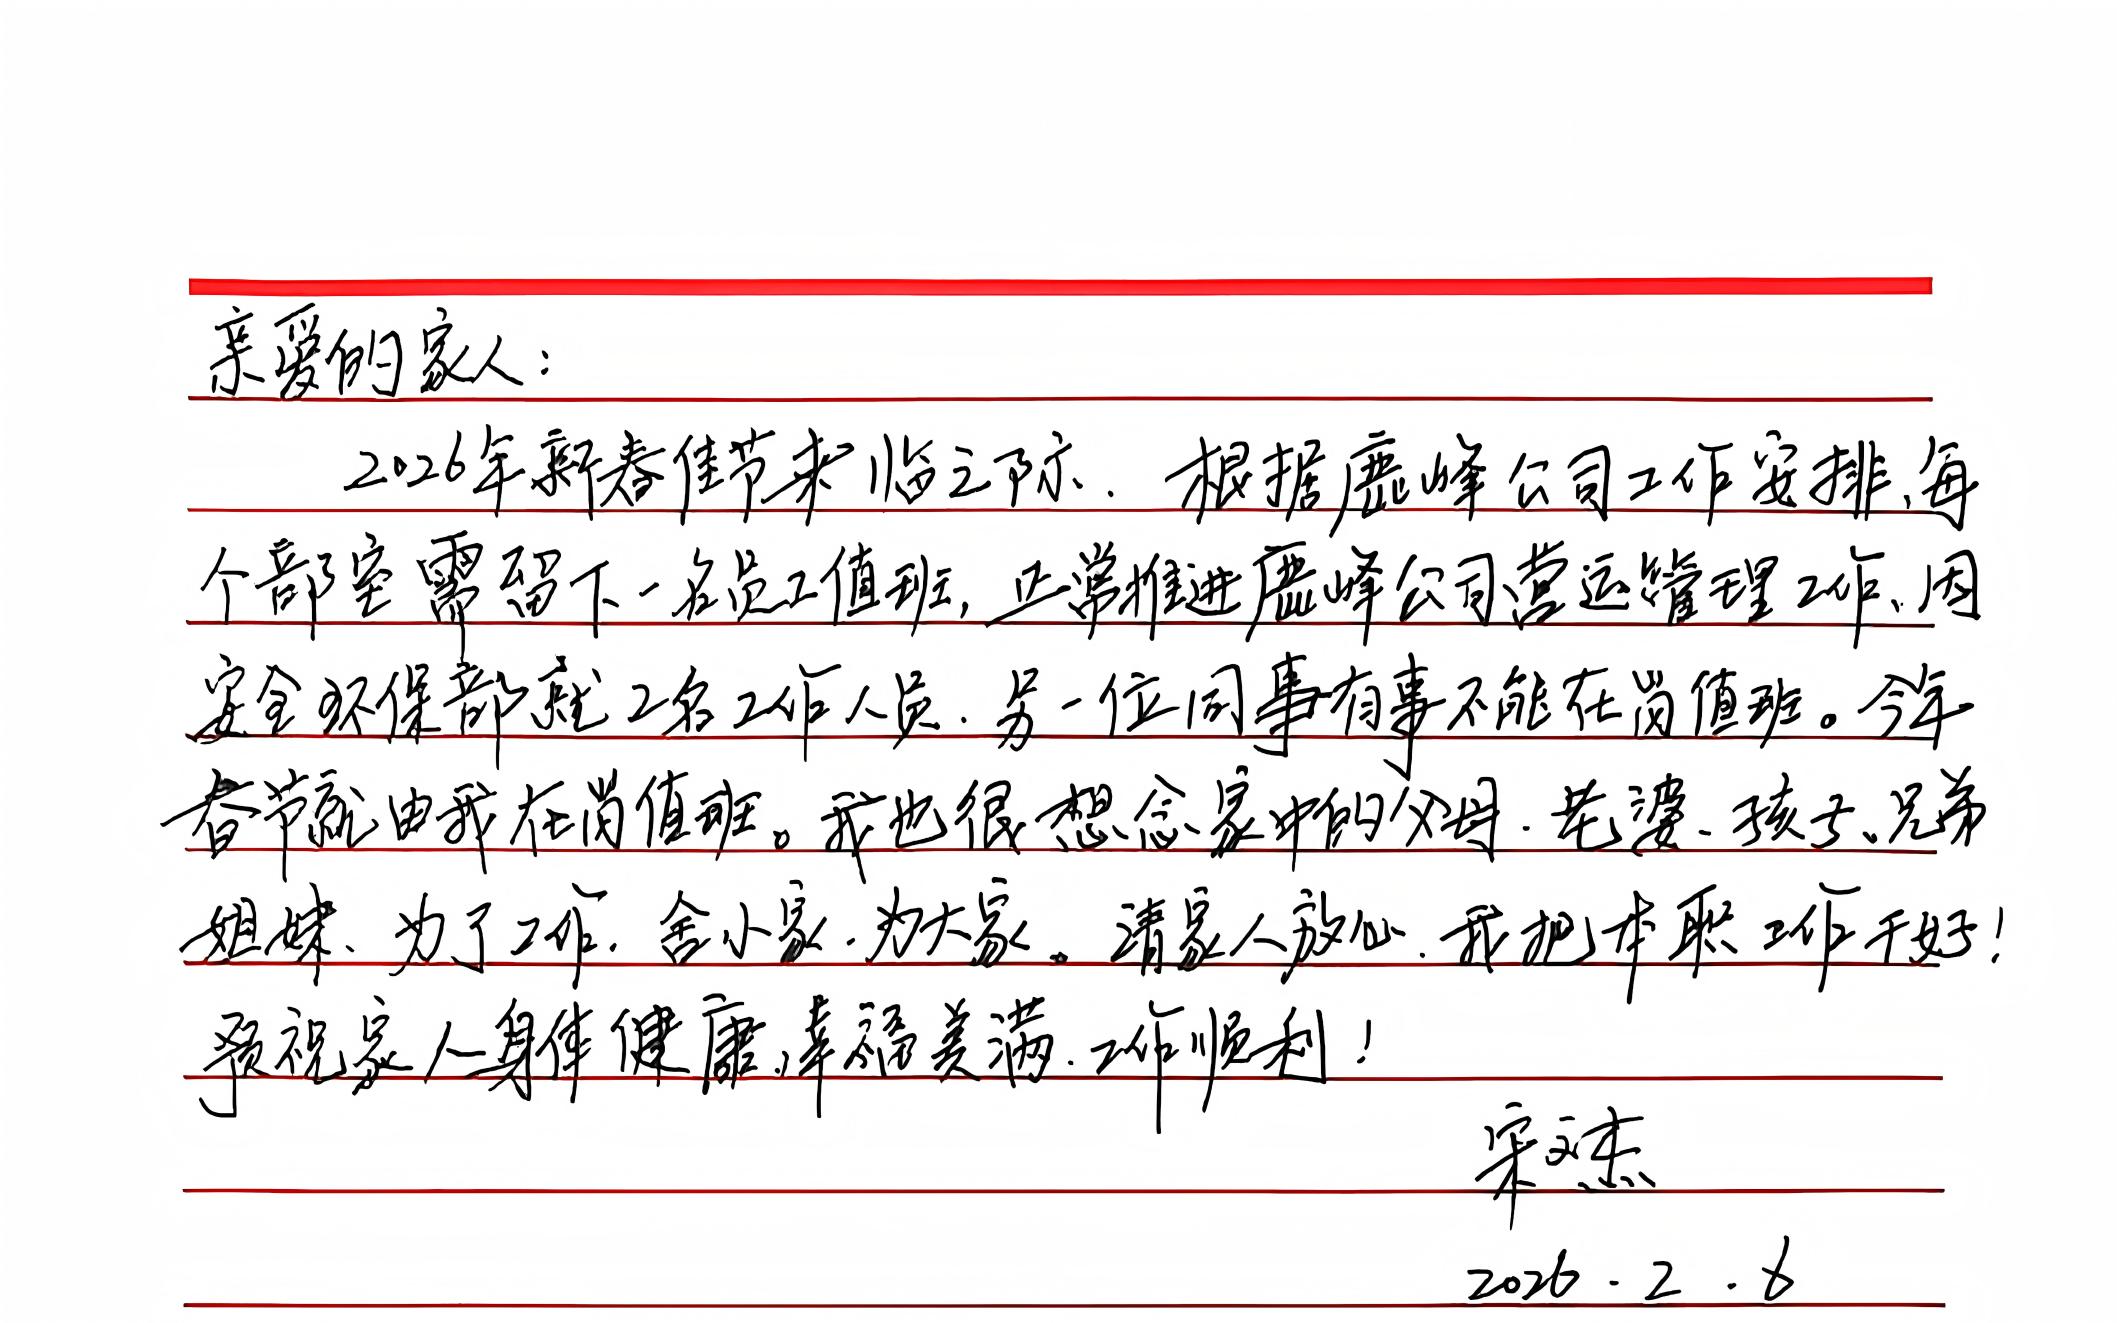 亲爱的家人：
2026年新春佳节来临之际.根据鹿峰公司工作安排,每
个部室需留下一名员工值班,正常推进鹿峰公司营运管理工作、因
安全环保部就2名工作人员.另一位同事有事不能在岗值班。今年
春节就由我在岗值班。我也很想念家中的父母.老婆、孩子、兄弟
姐妹、为了工作.舍小家.为大家。请家人放心.我把本职工作干好！
预祝家人身体健康,幸福美满.工作顺利！
宋文杰
2026.2.6